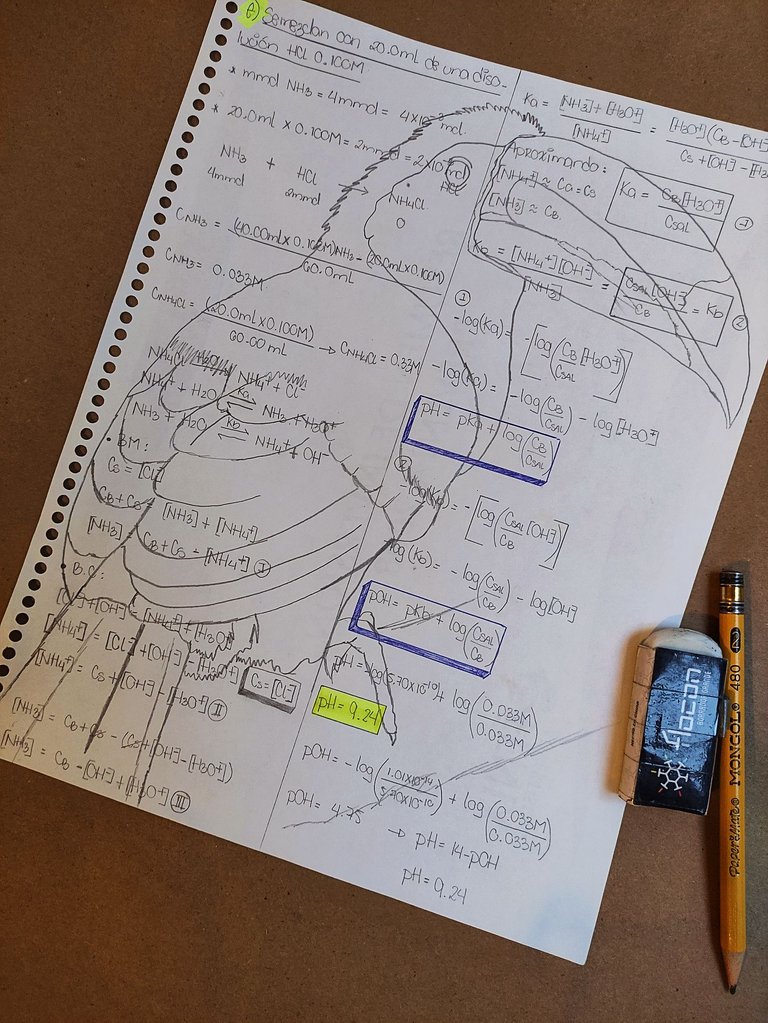 e) Se mezclan con 20.0mL de una diso-
lución HCl 0.100M
* mmol NH3 = 4mmol = 4x10⁻³ mol.
* 20.0mL x 0.100M = 2mmol = 2x10⁻³ mol HCl
NH3 + HCl → NH4Cl
4mmol 2mmol 0
CNH3 = (40.00mL x 0.100M)NH3 - (20.0mL x 0.100M)
60.0mL
CNH3 = 0.033M
CNH4Cl = (20.0mL x 0.100M)
60.00mL
→ CNH4Cl = 0.33M
NH4⁺ + Cl⁻
NH4⁺ + H2O ⇌ NH3 + H3O⁺
Ka
NH3 + H2O ⇌ NH4⁺ + OH⁻
Kb
• BM:
Cs = [Cl⁻]
CB + Cs
[NH3] + [NH4⁺]
[NH3]
CB + Cs - [NH4⁺] I
• B.C:
[Cl⁻] + [OH⁻] = [NH4⁺] + [H3O⁺]
[NH4⁺] = [Cl⁻] + [OH⁻] - [H3O⁺]
Cs = [Cl⁻]
[NH4⁺] = Cs + [OH⁻] - [H3O⁺] II
[NH3] = CB + Cs - (Cs + [OH⁻] - [H3O⁺])
[NH3] = CB - [OH⁻] + [H3O⁺] III
Ka = [NH3] + [H3O⁺] / [NH4⁺] = [H3O⁺](CB - [OH⁻] / Cs + [OH⁻] - [H3
Aproximando:
[NH4⁺] ≈ Ca = Cs
[NH3] ≈ CB
Ka = CB[H3O⁺] / CSAL 1
= [NH4⁺][OH⁻] / [NH3] = CSAL[OH⁻] / CB = Kb 2
1
-log(Ka) = -[log(CB[H3O⁺] / CSAL)]
-log(Ka) = -log(CB / CSAL) - log[H3O⁺]
pH = pKa + log(CB / CSAL)
2
-log(Kb) = -[log(CSAL[OH⁻] / CB)]
-log(Kb) = -log(CSAL / CB) - log[OH⁻]
pOH = pKb + log(CSAL / CB)
pH = -log(5.70x10⁻¹⁰) + log(0.033M / 0.033M)
pH = 9.24
pOH = -log(1.01x10⁻¹⁴ / 5.70x10⁻¹⁰) + log(0.033M / 0.033M)
pOH = 4.75
→ pH = 14-pOH
pH = 9.24
PaperMate® MONGOL® 480 2